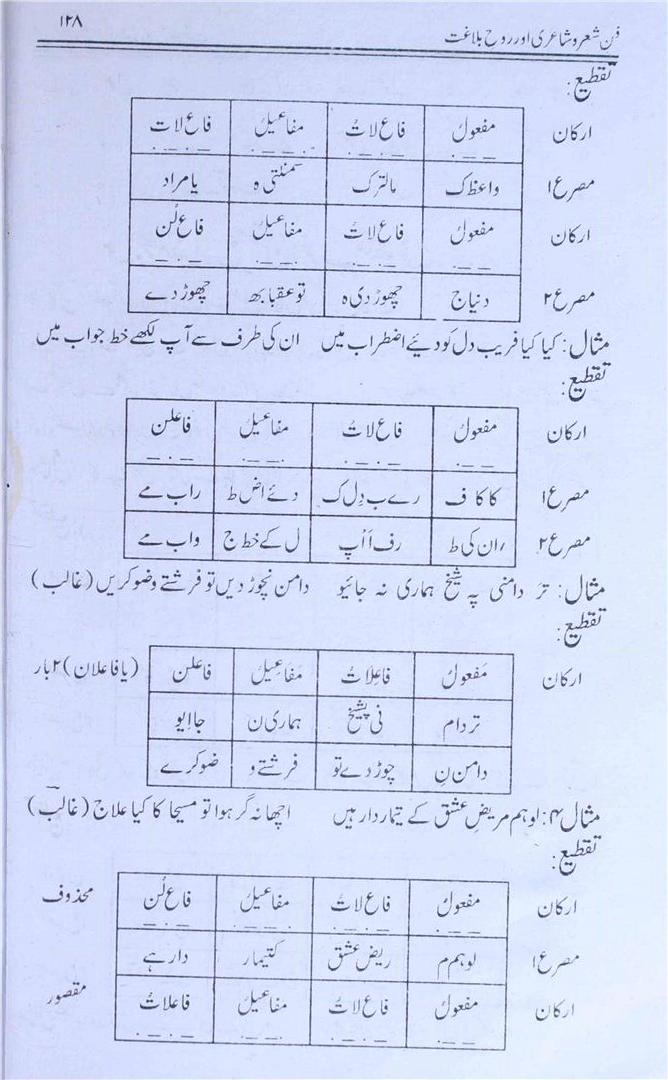 ۱۲۸ فن شعر و شاعری اور روح بلاغت
تقطیع:
ارکان مفعولُ فاع لاتُ مفاعیلُ فاع لات
مصرع۱ واعظ ک مالترک سمنتی ہ یا مراد
ارکان مفعولُ فاع لاتُ مفاعیلُ فاع لُن
مصرع۲ دنیا ج چھوڑ دی ہ تو عقبا بھ چھوڑ دے
مثال: کیا کیا فریب دل کو دئیے اضطراب میں ان کی طرف سے آپ لکھے خط جواب میں
تقطیع:
ارکان مفعولُ فاع لاتُ مفاعیلُ فاعلن
مصرع۱ کا کا ف رے ب دِل ک دئے اض ط راب مے
مصرع۲ ان کی ط رف اٰ اٰپ ل کے خط ج واب مے
مثال: تر دامنی پہ شیخ ہماری نہ جائیو دامن نچوڑ دیں تو فرشتے وضو کریں (غالب)
تقطیع:
ارکان مَفعولُ فاعِلاتُ مَفاعِیلُ فاعلن (یا فاعلان) ۲ بار
تر دام نی پشیخ ہماری ن جاایو
دامن نِ چوڑ دے تو فرشتے و ضو کرے
مثال ۴: لو ہم مریضِ عشق کے تیمار دار ہیں اچھا نہ گر ہوا تو مسیحا کا کیا علاج (غالبؔ)
تقطیع:
ارکان مفعولُ فاع لاتُ مفاعیلُ فاع لُن محذوف
مصرع۱ لو ہم م ریض عشق کتیمار دار ہے
ارکان مفعولُ فاع لاتُ مفاعیلُ فاعلاتُ مقصور